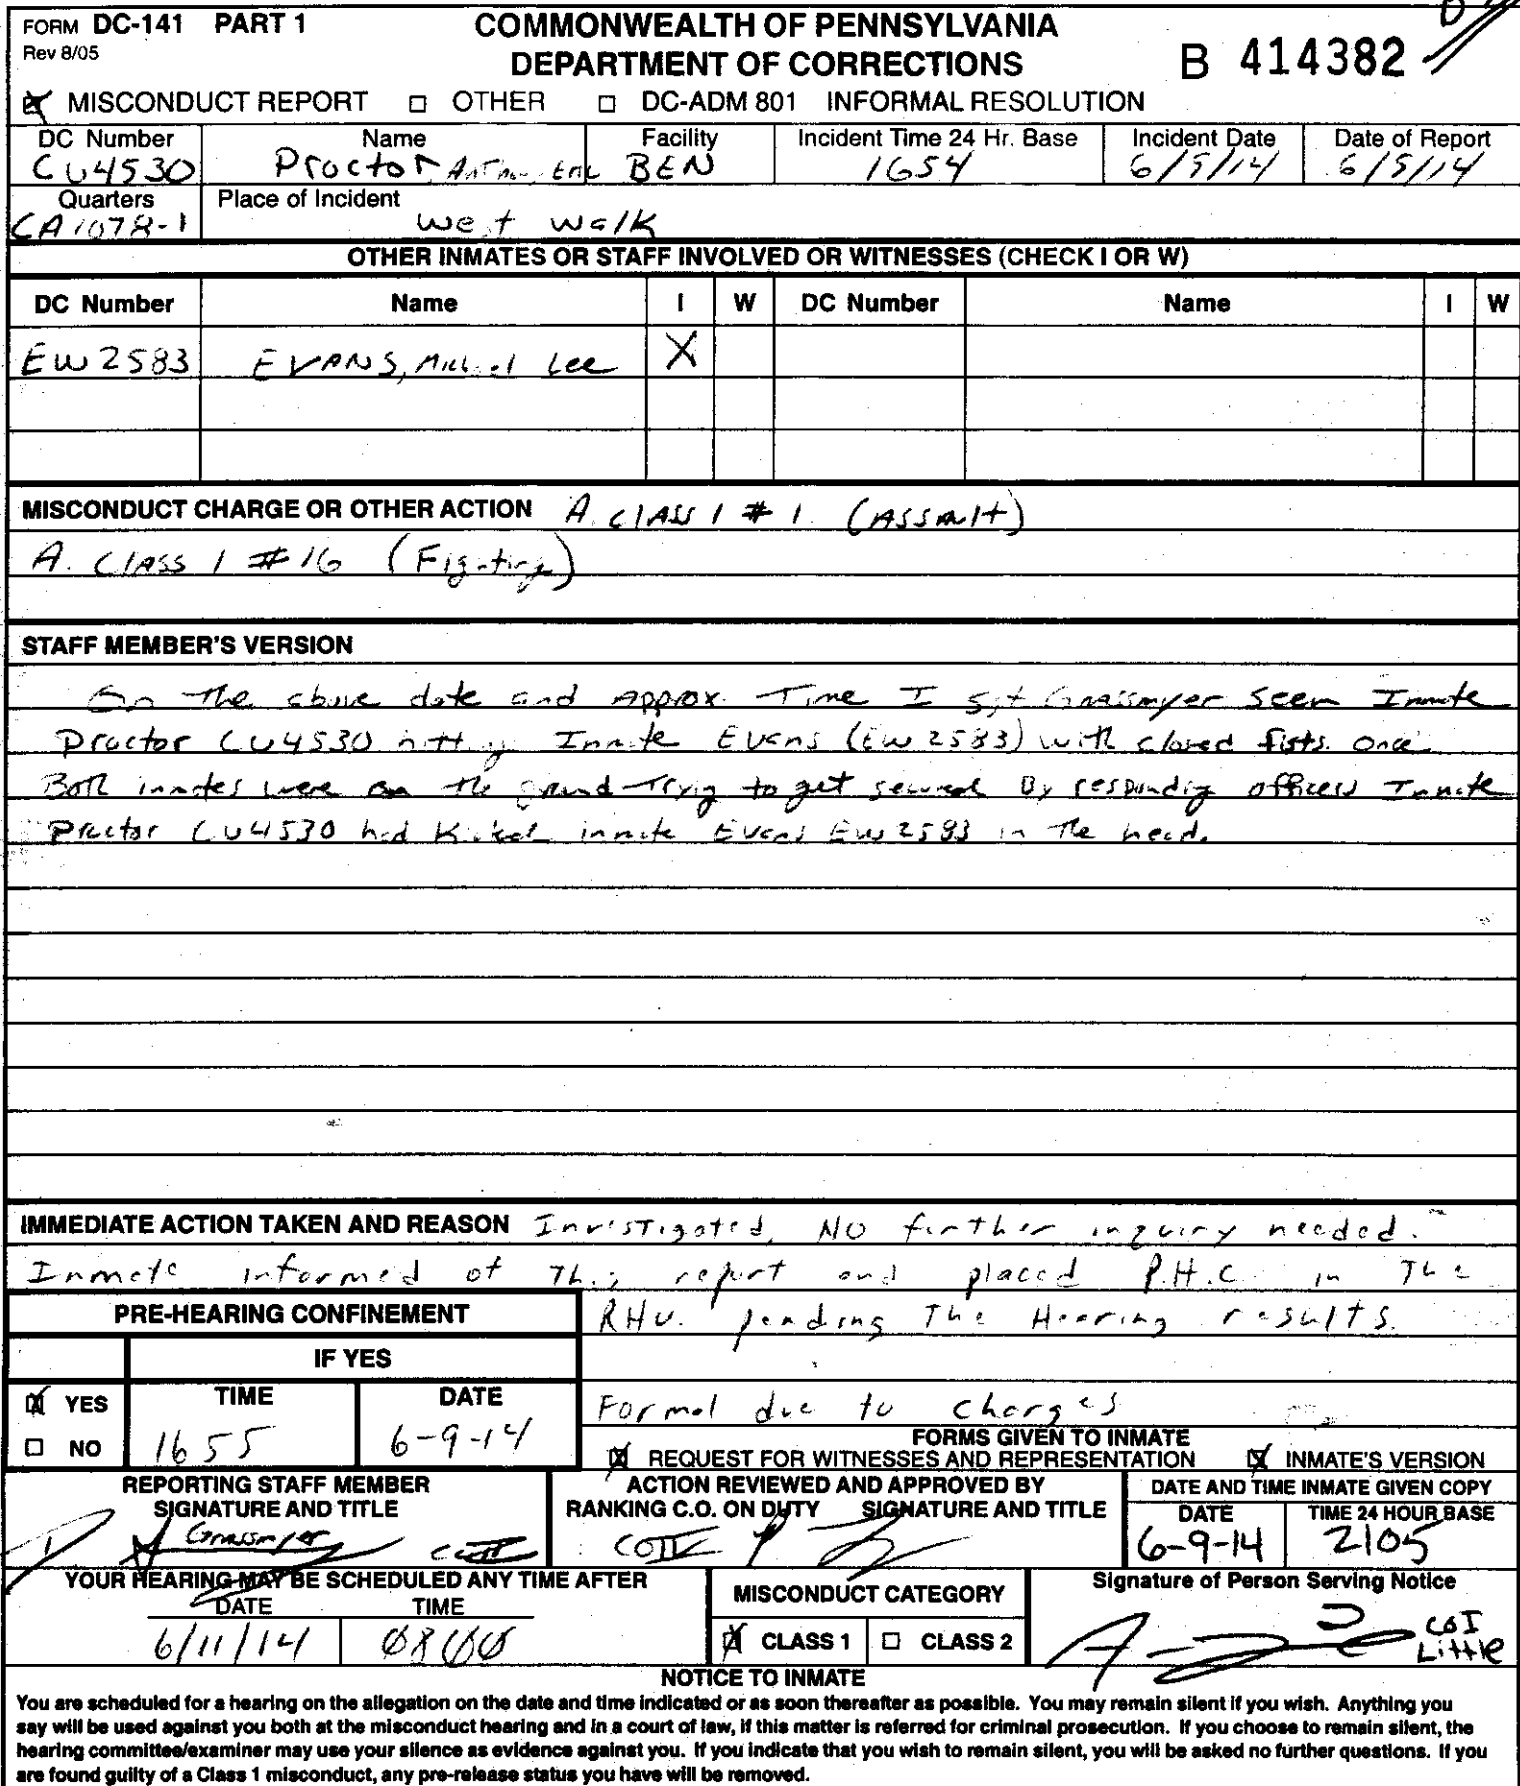 FORM DC-141 PART 1
Rev 8/05
COMMONWEALTH OF PENNSYLVANIA
DEPARTMENT OF CORRECTIONS
B 414382
MISCONDUCT REPORT □ OTHER □ DC-ADM 801 INFORMAL RESOLUTION
DC Number Name Facility Incident Time 24 Hr. Base Incident Date Date of Report
CU4530 Proctor BEN 1654
Quarters Place of Incident
CA1078-1 West Walk
OTHER INMATES OR STAFF INVOLVED OR WITNESSES (CHECK I OR W)
DC Number Name I W DC Number Name I W
EW2583 EVANS, Michael Lee X
MISCONDUCT CHARGE OR OTHER ACTION A. CLASS 1 # 1. (ASSAult)
A. CLASS 1 #16 (Fighting)
STAFF MEMBER'S VERSION
On The above date and Approx. Time I Sgt Grassmyer seen Inmate
Proctor CU4530 hitting Inmate Evans (EW2583) with closed fists. once
Both inmates were on the ground Trying to get secured By responding officers Inmate
Proctor CU4530 had Kicked inmate Evans EW2583 in The head.
IMMEDIATE ACTION TAKEN AND REASON Investigated, NO further inquiry needed.
Inmate informed of This report and placed P.H.C. in The
PRE-HEARING CONFINEMENT
RHU. pending The Hearing results.
IF YES
YES TIME DATE
Formal due to charges
□ NO 1655 6-9-14
FORMS GIVEN TO INMATE
REQUEST FOR WITNESSES AND REPRESENTATION INMATE'S VERSION
REPORTING STAFF MEMBER
SIGNATURE AND TITLE
ACTION REVIEWED AND APPROVED BY
RANKING C.O. ON DUTY SIGNATURE AND TITLE
DATE AND TIME INMATE GIVEN COPY
DATE TIME 24 HOUR BASE
Grassmyer COII
6-9-14 2105
YOUR HEARING MAY BE SCHEDULED ANY TIME AFTER
DATE TIME
6/11/14 0800
MISCONDUCT CATEGORY
CLASS 1 □ CLASS 2
Signature of Person Serving Notice
COI
Little
NOTICE TO INMATE
You are scheduled for a hearing on the allegation on the date and time indicated or as soon thereafter as possible. You may remain silent if you wish. Anything you
say will be used against you both at the misconduct hearing and in a court of law, if this matter is referred for criminal prosecution. If you choose to remain silent, the
hearing committee/examiner may use your silence as evidence against you. If you indicate that you wish to remain silent, you will be asked no further questions. If you
are found guilty of a Class 1 misconduct, any pre-release status you have will be removed.